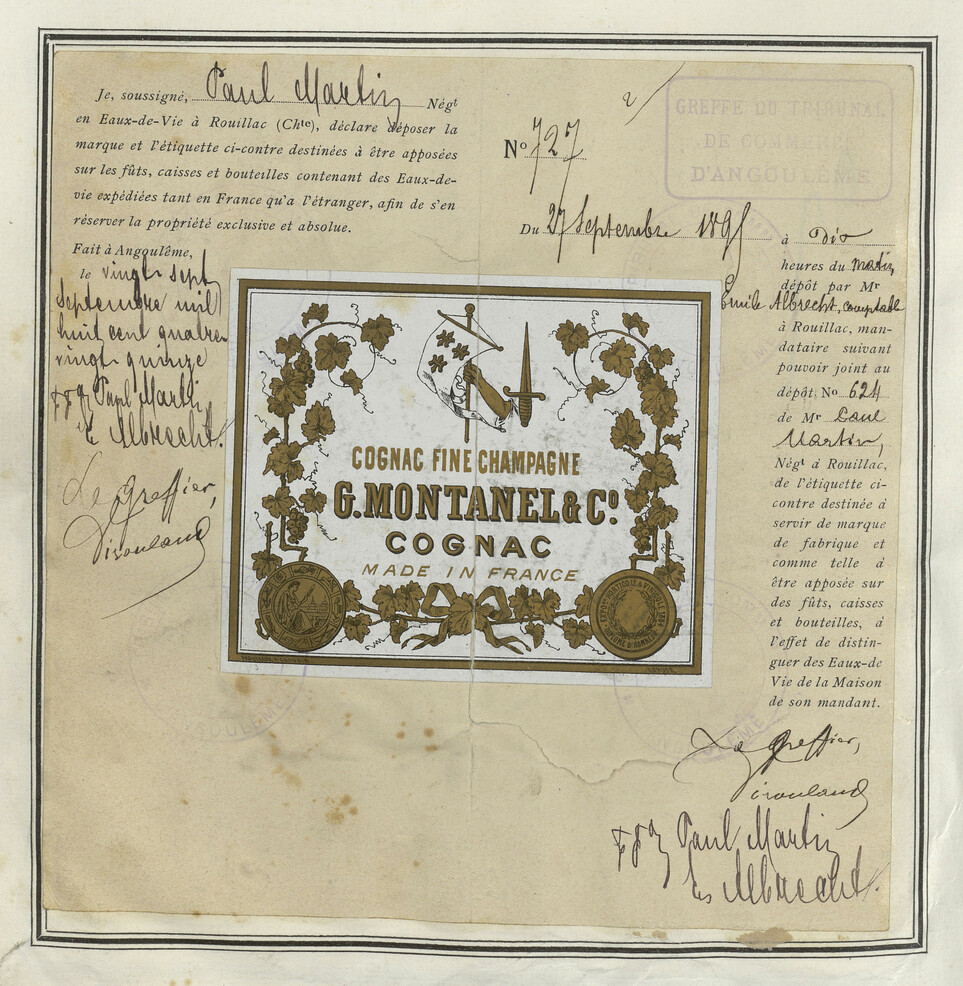 Je, soussigné, Paul Martin Négt
en Eaux-de-Vie à Rouillac (Chte), déclare déposer la
marque et l'étiquette ci-contre destinées à être apposées
sur les fûts, caisses et bouteilles contenant des Eaux-de-
vie expédiées tant en France qu'a l'étranger, afin de s'en
réserver la propriété exclusive et absolue.
Fait à Angoulême,
le vingt sept
Septembre mil
huit cent quatre
vingt quinze
Paul Martin
E Albrecht.
Le Greffier,
GREFFE DU TRIBUNAL
DE COMMERCE
D'ANGOULÊME
No 727
Du 27 Septembre 1895 à dix
heures du matin
dépôt par Mr
Emile Albrecht, comptable
à Rouillac, man-
dataire suivant
pouvoir joint au
dépôt No 624
de Mr Paul
Martin,
Négt à Rouillac,
de l'étiquette ci-
contre destinée à
servir de marque
de fabrique et
comme telle à
être apposée sur
des fûts, caisses
et bouteilles, à
l'effet de distin-
guer des Eaux-de
Vie de la Maison
de son mandant.
Le Greffier,
Paul Martin
Albrecht.
COGNAC FINE CHAMPAGNE
G. MONTANEL & Co.
COGNAC
MADE IN FRANCE